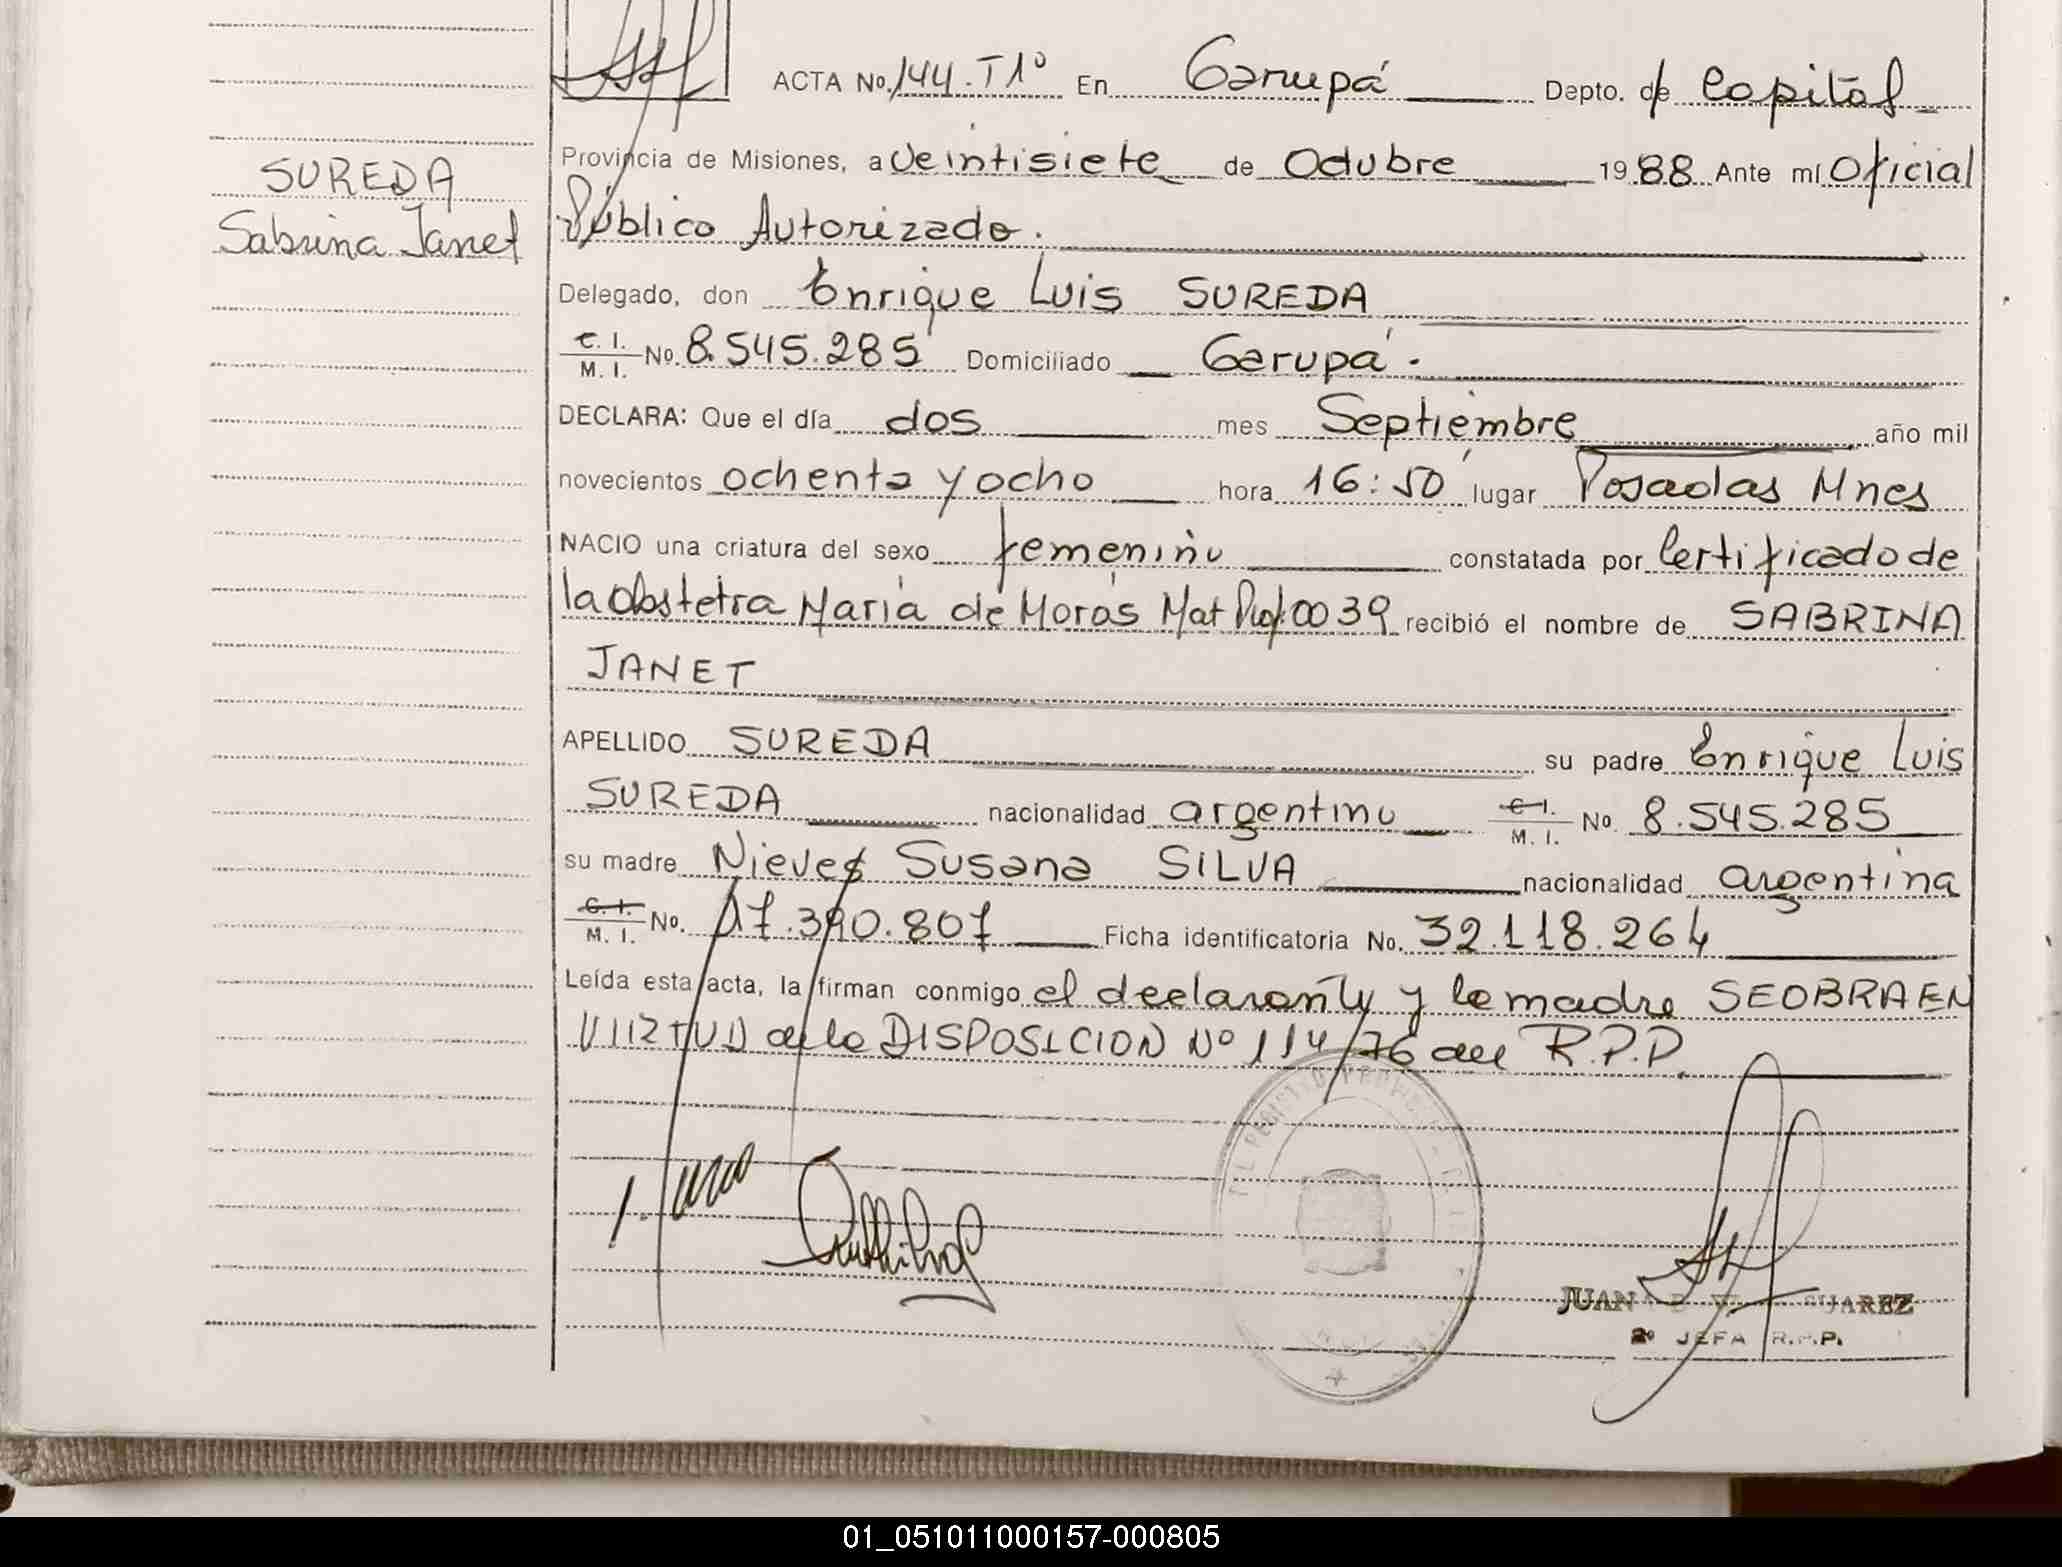 ACTA No. 144. T1º En Garupá Depto. de Capital
Provincia de Misiones, a Veintisiete de Octubre 1988 Ante mí Oficial
SUREDA
Público Autorizado.
Sabrina Janet
Delegado, don Enrique Luis SUREDA
C. I. / M. I. No. 8.545.285 Domiciliado Garupá.
DECLARA: Que el día dos mes Septiembre año mil
novecientos ochenta y ocho hora 16:50 lugar Posadas Mnes
NACIO una criatura del sexo femenino constatada por Certificado de
la Obstetra María de Morás Mat Prof. 0039 recibió el nombre de SABRINA
JANET
APELLIDO SUREDA su padre Enrique Luis
SUREDA nacionalidad argentino C. I. / M. I. No. 8.545.285
su madre Nieves Susana SILVA nacionalidad argentina
C. I. / M. I. No. 17.390.807 Ficha identificatoria No. 32.118.264
Leída esta acta, la firman conmigo el declarante y la madre SEOBRA EN
VIRTUD de la DISPOSICION Nº 114/76 del R.P.P.
JUAN SUAREZ
2º JEFA R.P.P.
01_051011000157-000805